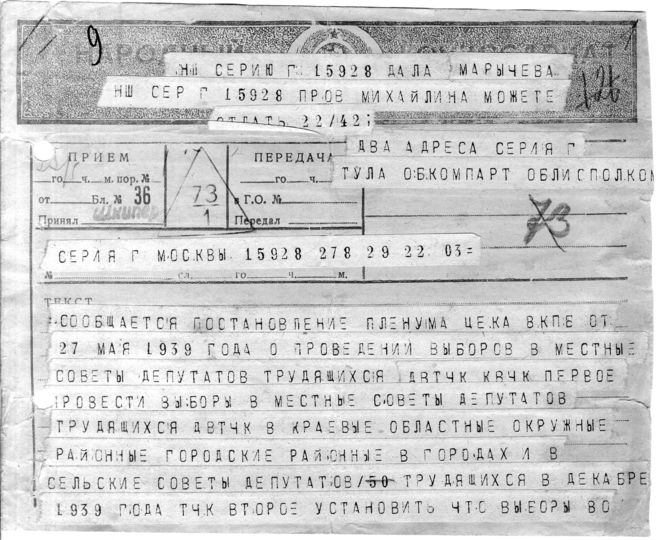 9
НАРОДНЫЙ КОМИССАРИАТ
НШ СЕРИЮ Г 15928 ДАЛА МАРЫЧЕВА
НШ СЕР Г 15928 ПРОВ МИХАЙЛИНА МОЖЕТЕ
ОТДАТЬ 22/42;
ДВА АДРЕСА СЕРИЯ Г
ТУЛА ОБКОМПАРТ ОБЛИСПОЛКОМ
ПРИЕМ
ПЕРЕДАЧА
го ч. м. пор. №
го ч.
от Бл. № 36
73
1
в Г.О. №
Принял
Передал
73
СЕРИЯ Г МОСКВЫ 15928 278 29 22 03=
№ сл. го ч. м.
ТЕКСТ
:СООБЩАЕТСЯ ПОСТАНОВЛЕНИЕ ПЛЕНУМА ЦЕКА ВКПБ ОТ
27 МАЯ 1939 ГОДА О ПРОВЕДЕНИИ ВЫБОРОВ В МЕСТНЫЕ
СОВЕТЫ ДЕПУТАТОВ ТРУДЯЩИХСЯ ДВТЧК КВЧК ПЕРВОЕ
ПРОВЕСТИ ВЫБОРЫ В МЕСТНЫЕ СОВЕТЫ ДЕПУТАТОВ
ТРУДЯЩИХСЯ ДВТЧК В КРАЕВЫЕ ОБЛАСТНЫЕ ОКРУЖНЫЕ
РАЙОННЫЕ ГОРОДСКИЕ РАЙОННЫЕ В ГОРОДАХ И В
СЕЛЬСКИЕ СОВЕТЫ ДЕПУТАТОВ/50 ТРУДЯЩИХСЯ В ДЕКАБРЕ
1939 ГОДА ТЧК ВТОРОЕ УСТАНОВИТЬ ЧТО ВЫБОРЫ ВО